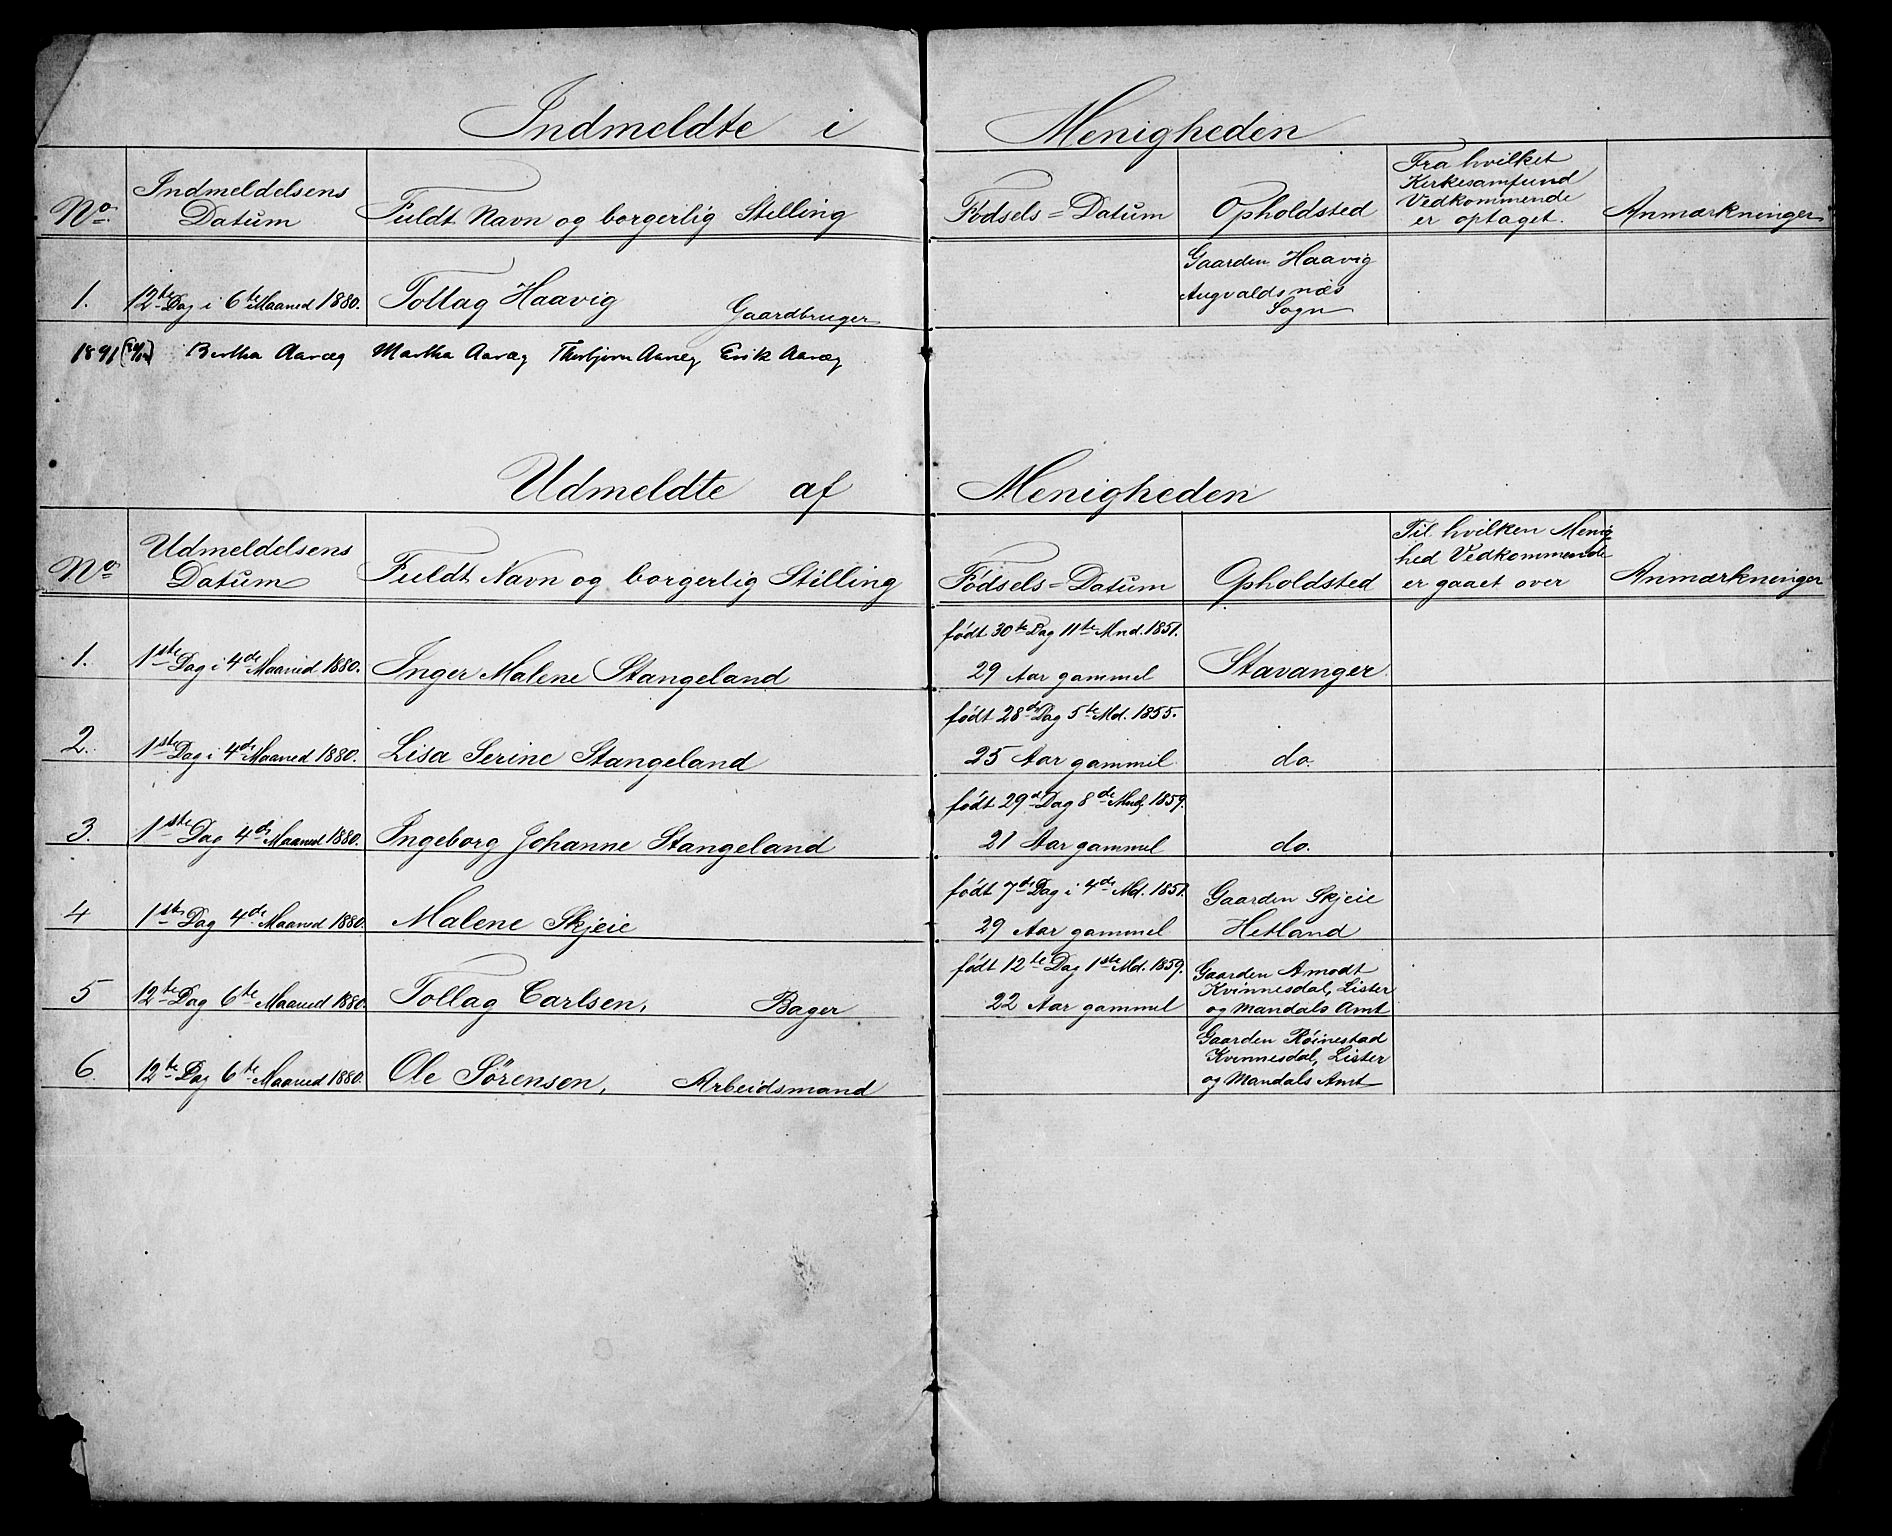 Indmeldte i Menigheden
No. Indmeldelsens Datum Fuldt Navn og borgerlig Stilling Fodsels=Datum Opholdsted Fra hvilket Kirkesamfund Vedkommende er optaget. Anmærkninger
1. 12te Dag i 6te Maaned 1880. Tollag Haavig Gaardbruger Gaarden Haavig Augvaldsnæs Sogn
1891 Bertha Aaræg Martha Aaræg Thorbjørn Aaræg Erik Aaræg
Udmeldte af Menigheden
No. Udmeldelsens Datum Fuldt Navn og borgerlig Stilling Födsels=Datum Opholdsted Til hvilken Menighed Vedkommende er gaaet over Anmærkninger
1. 1ste Dag i 4de Maaned 1880. Inger Malene Stangeland födt 30te Dag 11te Mnd. 1851. 29 Aar gammel Stavanger
2. 1ste Dag i 4de Maaned 1880. Lisa Serine Stangeland födt 28de Dag 5te Md. 1855. 25 Aar gammel do.
3. 1ste Dag 4de Maaned 1880. Ingeborg Johanne Stangeland födt 29d Dag 8de Mnd. 1859. 21 Aar gammel do.
4 1ste Dag 4de Maaned 1880. Malene Skjeie födt 7de Dag i 4de Md. 1851. 29 Aar gammel Gaarden Skjeie Hetland
5 12te Dag 6te Maaned 1880. Tollag Carlsen, Bager födt 12te Dag 1ste Md. 1859. 22 Aar gammel Gaarden Amodt Kvinnesdal, Lister og Mandals Amt
6. 12te Dag 6te Maaned 1880. Ole Sörensen, Arbeidsmand Gaarden Röinestad Kvinnesdal, Lister og Mandals Amt